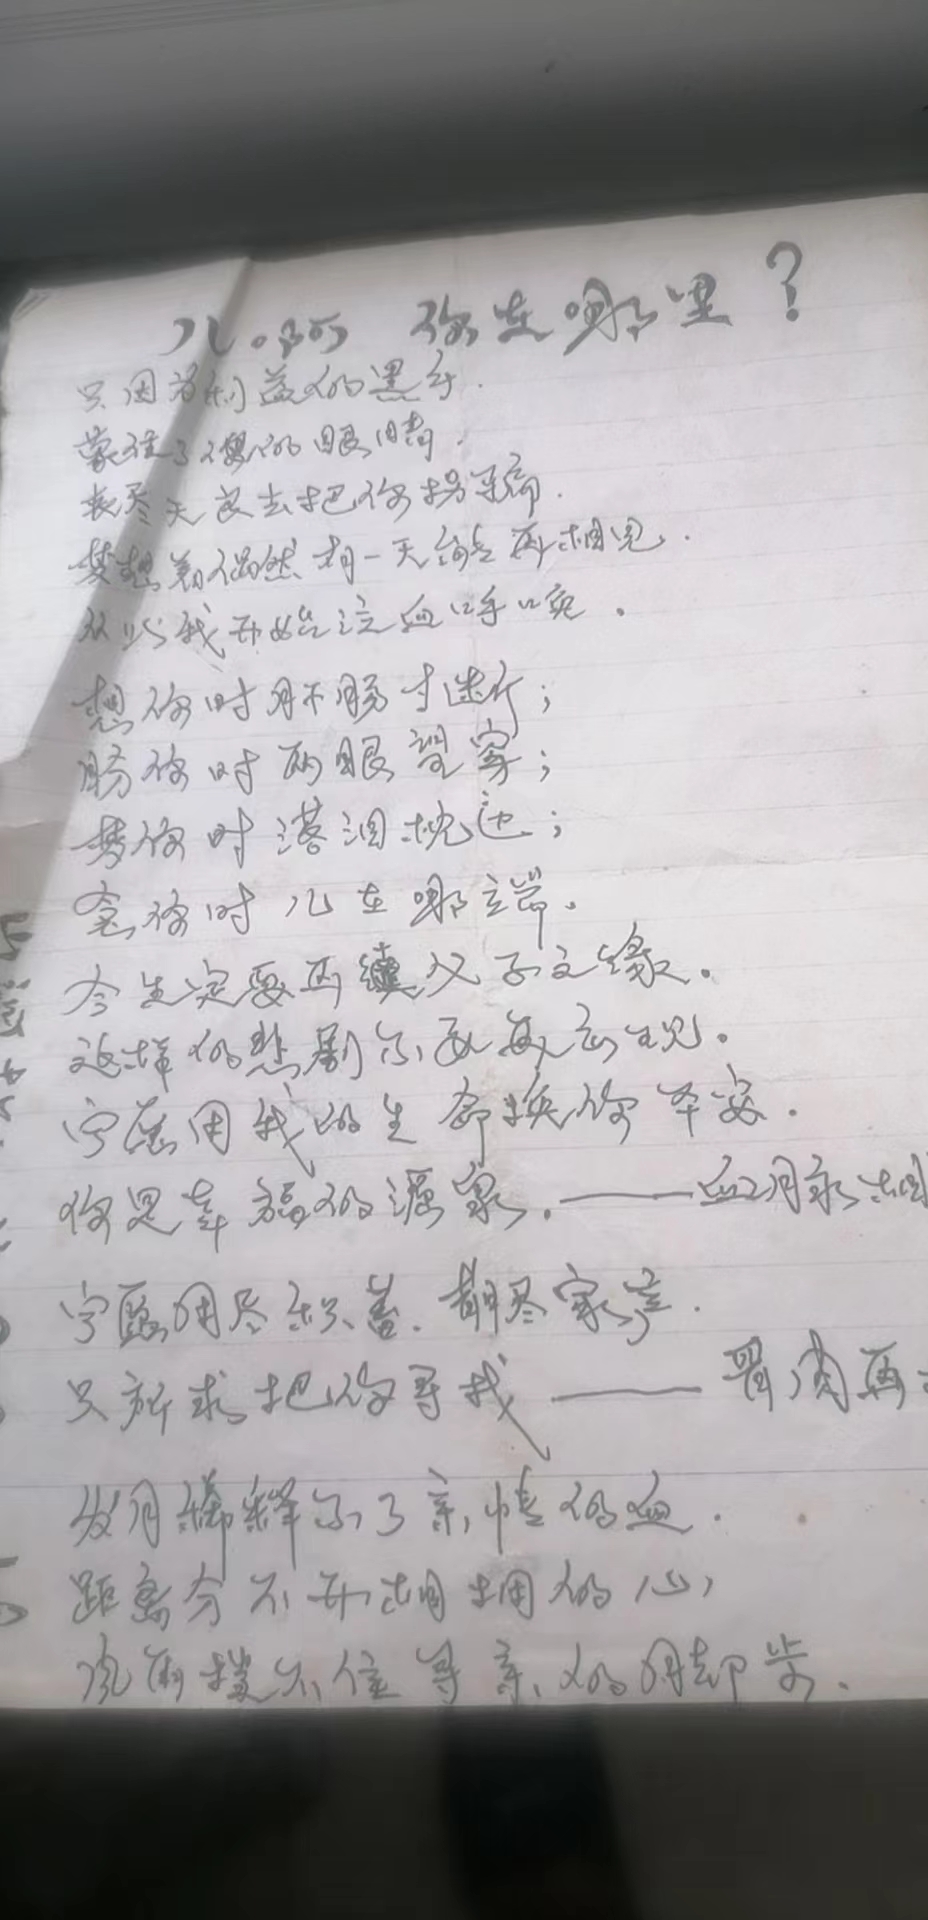 儿啊 你在哪里？
只因为利益的黑手.
蒙住了的眼睛.
丧尽天良去把你拐骗.
梦想着偶然有一天能再相见.
从此我开始泣血呼唤.
想你时肝肠寸断；
盼你时两眼望穿；
梦你时湿泪枕边；
念你时儿在哪端.
今生定要再续父子之缘.
这样的悲剧不要再出现.
宁愿用我的生命换你平安.
你是幸福的源泉.——血月永相
宁愿用尽积蓄.耗尽家产.
只祈求把你寻找——骨肉再
岁月稀释不了亲情的血.
距离分不开相拥的心,
风雨挡不住寻亲的脚步.